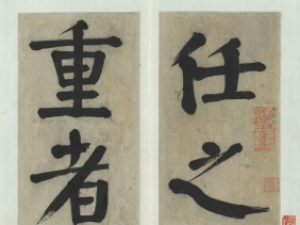 任之
重者